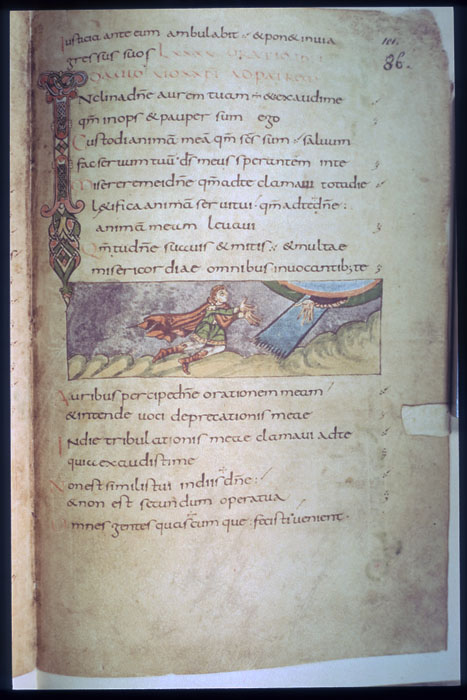 iusticia ante eum ambulabit · & pon& inuia
gressus suos LXXXV ORATIO
DAUID
INclina dñe aurem tuam & exaudi me
qm̄ inops & pauper sum ego
Custodi animā meā qm̄ scs̄ sum · saluum
fac seruum tuū ds̄ meus sperantem in te
Miserere mei dñe qm̄ ad te clamaui tota die
l&ifica animā serui tui · qm̄ ad te dñe ·
animā meam leuaui
Qm̄ tu dñe suauis & mitis · & multae
misericordiae omnibus inuocantib; te
Auribus percipe dñe orationem meam
& intende uoci deprecationis meae
In die tribulationis meae clamaui ad te
quia exaudisti me
Non est similis tui in diis dñe ·
& non est secundum opera tua
Omnes gentes quascumque fecisti uenient ·
86.